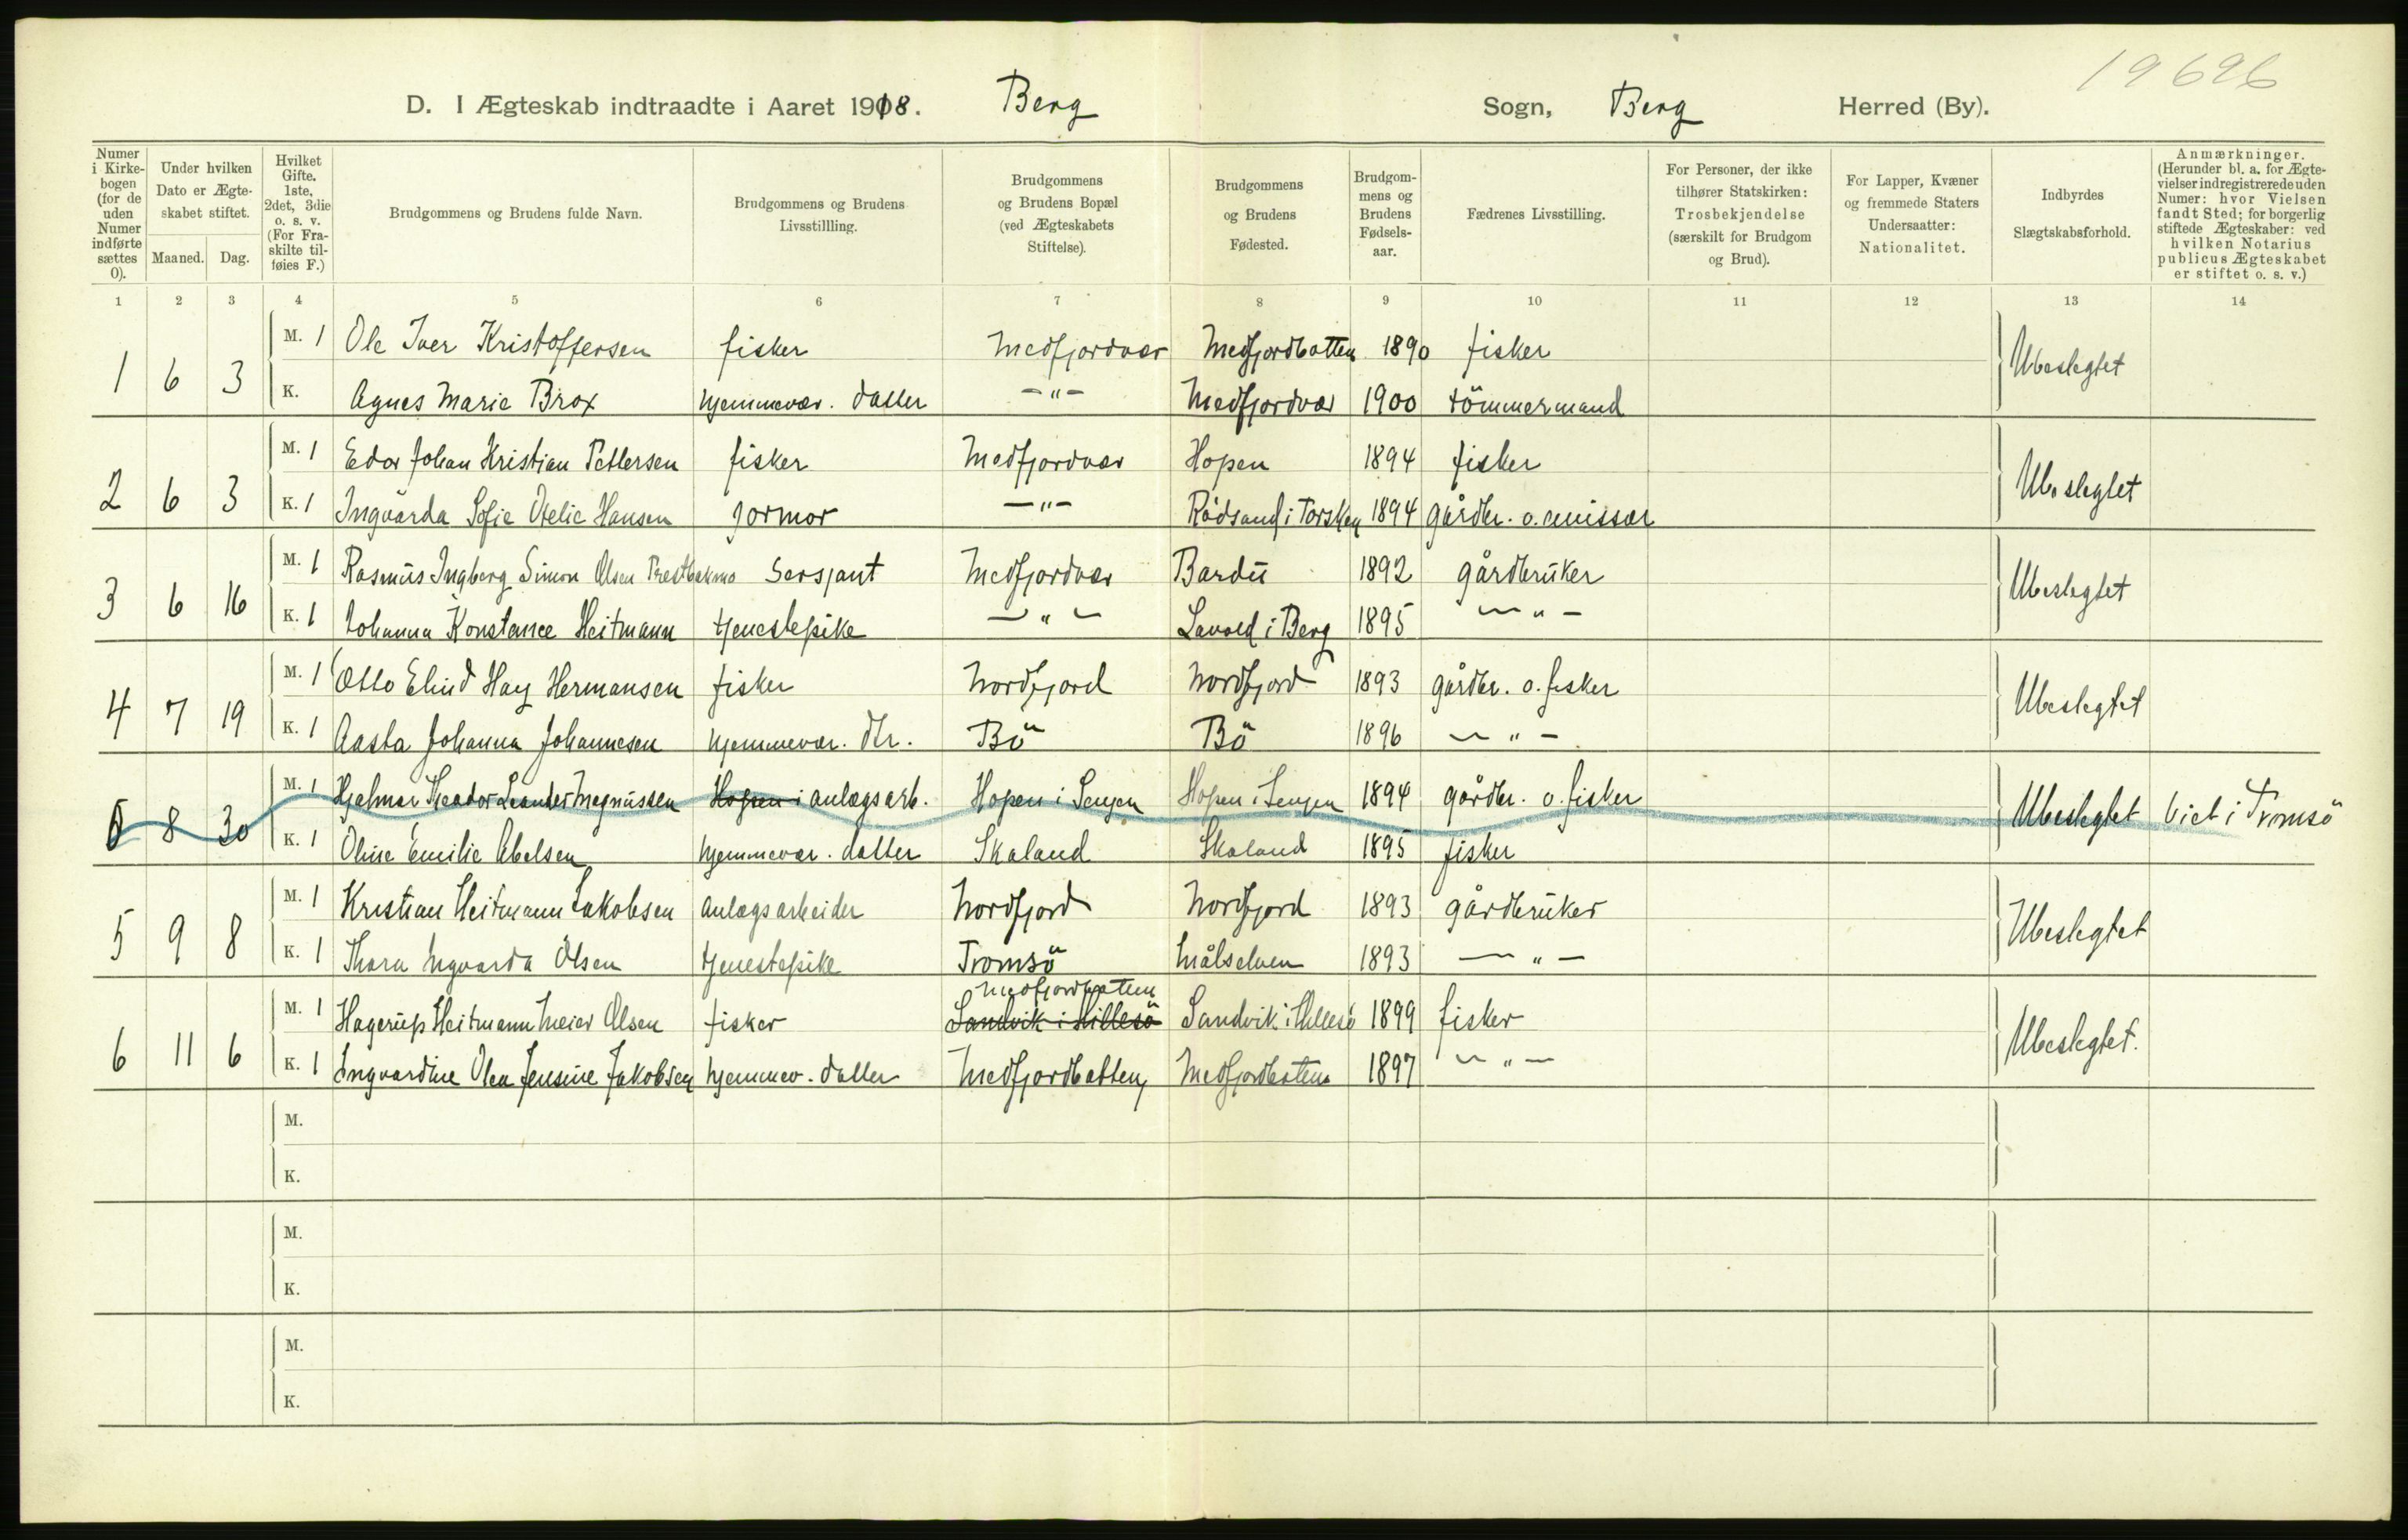 19696
D. I Ægteskab indtraadte i Aaret 1918. Berg Sogn, Berg Herred (By).
Numer i Kirkebogen (for de uden Numer indførte sættes 0).
Under hvilken Dato er Ægteskabet stiftet.
Maaned. Dag.
Hvilket Gifte. 1ste, 2det, 3die o. s. v. (For Fraskilte tilføies F.)
Brudgommens og Brudens fulde Navn.
Brudgommens og Brudens Livsstillling.
Brudgommens og Brudens Bopæl (ved Ægteskabets Stiftelse).
Brudgommens og Brudens Fødested.
Brudgommens og Brudens Fødselsaar.
Fædrenes Livsstilling.
For Personer, der ikke tilhører Statskirken: Trosbekjendelse (særskilt for Brudgom og Brud).
For Lapper, Kvæner og fremmede Staters Undersaatter: Nationalitet.
Indbyrdes Slægtskabsforhold.
Anmærkninger. (Herunder bl. a. for Ægtevielser indregistrerede uden Numer: hvor Vielsen fandt Sted; for borgerlig stiftede Ægteskaber: ved hvilken Notarius publicus Ægteskabet er stiftet o. s. v.)
1 2 3 4 5 6 7 8 9 10 11 12 13 14
1 6 3 M. 1 Ole Iver Kristoffersen fisker Medfjordvær Medfjordbotten 1890 fisker Ubeslegtet
K. Agnes Marie Brox hjemmevær. datter -"- Medfjordvær 1900 tömmermand
2 6 3 M. 1 Edor Johan Kristian Pettersen fisker Medfjordvær Hopen 1894 fisker Ubeslegtet
K. 1 Ingvarda Sofie Otelie Hansen jormor -"- Rödsand i Torsken 1894 gårdbr. o. emissær
3 6 16 M. 1 Rasmus Ingberg Simon Olsen Prestbakmo Sersjant Medfjordvær Bardu 1892 gårdbruker Ubeslegtet
K. 1 Johanna Konstance Heitmann tjenestepike -"- i Berg 1895 -"-
4 7 19 M. 1 Otto Hay Hermansen fisker Nordfjord Nordfjord 1893 gårdbr. o. fisker Ubeslegtet
K. 1 Aasta Johanna Johannesen hjemmevær. dtr. Bö Bö 1896 -"-
0 8 30 M. 1 Hjalmar Theodor Leander Magnussen Hopen i anlægsarb. Hopen i Senjen Hopen i Senjen 1894 gårdbr. o. fisker Ubeslegtet Viet i Tromsö
K. 1 Oline Emilie Abelsen hjemmevær. datter Skaland Skaland 1895 fisker
5 9 8 M. 1 Kristian Heitmann Jakobsen anlægsarbeider Nordfjord Nordfjord 1893 gårdbruker Ubeslegtet
K. 1 Thora Ingvarda Olsen tjenestepike Tromsö Målselven 1893 -"-
Medfjordbotten
6 11 6 M. 1 Hagerup Heitmann Meier Olsen fisker Sandvik i Hillesö Sandvik i Hillesö 1899 fisker Ubeslegtet.
K. 1 Ingvardine Olea Jensine Jakobsen hjemmev. datter Medfjordbotten Medfjordbotten 1897 -"-
M.
K.
M.
K.
M.
K.